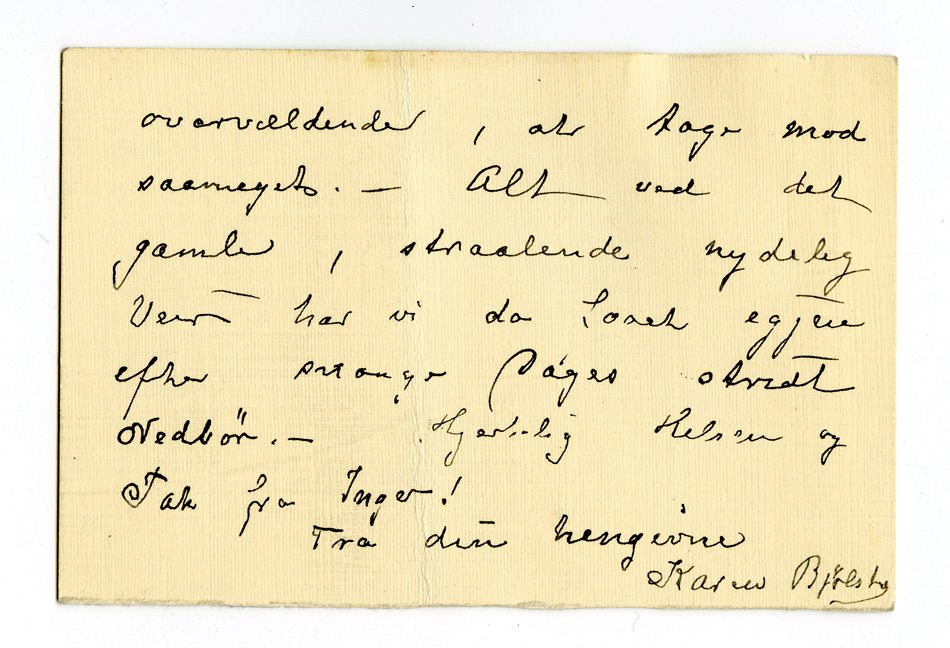 overvældende, at tage mod
saameget. — Alt ved det
gamle, straalende nydelig
Veir har vi da faaet igjen
efter mange Dages stridt
Nedbör. — Hjertelig Hilsen og
Tak fra Inger!
Fra din hengivne
Karen